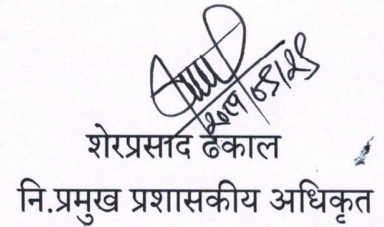 शेरप्रसाद ढकाल
नि.प्रमुख प्रशासकीय अधिकृत